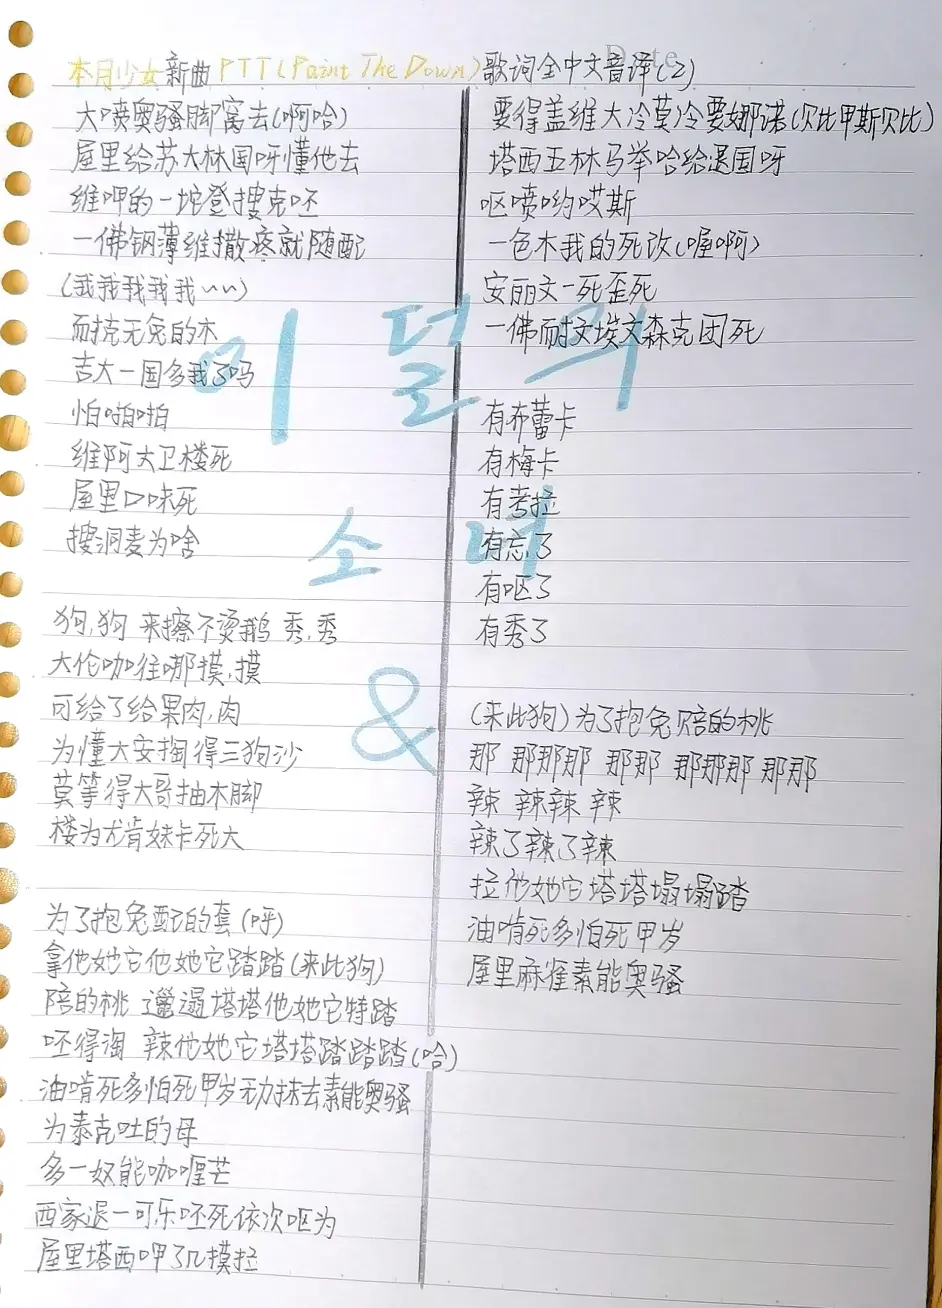 Date
本月少女新曲PTT(Paint The Down)歌词全中文音译(2)
大喷奥骚脚窝去(啊哈)
屋里给苏大林国呀懂他去
维呷的一坨登搜克呸
一佛钢薄维撒疼就随配
(我我我我我~~)
而挊无免的木
吉大一国多我了吗
怕啪啪
维阿大卫楼死
屋里口味死
搜洞麦为啥
狗,狗 来擦不烫鹅 秀,秀
大伦咖往哪摸,摸
可给了给果肉,肉
为懂大安掏得三狗沙
莫等得大哥抽木脚
楼为尤肯妹卡死大
为了抱兔配的套(呼)
拿他她它他她它踏踏(来此狗)
陪的桃 邋遢塔塔他她它特踏
呸得淘 辣他她它塔塔踏踏踏(哈)
油啃死多怕死甲岁无力抹去素能奥骚
为泰克吐的母
多一奴能咖喱芒
西家退一可乐呸死依次呕为
屋里塔西呷了几摸拉
要得盖维大冷莫冷要娜诺(贝比甲斯贝比)
塔西五林马举哈给退国呀
呕喷哟哎斯
一色木我的死改(喔啊)
安丽文一死歪死
一佛而挊文埃文森克团死
有布蕾卡
有梅卡
有考拉
有忘了
有呕了
有秀了
(来此狗)为了抱兔赔的桃
那 那那那 那那 那那那 那那
辣 辣辣 辣
辣了辣了辣
拉他她它塔塔塌塌踏
油啃死多怕死甲岁
屋里麻雀素能奥骚
이달의
소녀
&